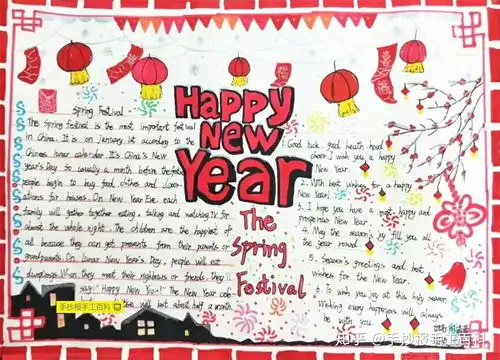 Happy
New
Year
The
Spring
Festival
Spring Festival
The Spring Festival is the most important festival
in China. It is on January 1st according to the
Chinese lunar calendar. It's China's New
Year's Day. to usually a month before the festival
people begin to buy food, clothes and
for houses. On New Year Eve, each
family will gather together eating, talking and watching TV for
almost the whole night. The children are the happiest of
all because they can get presents from their parents or
grandparents. On Lunar New Year's Day, people will eat
dumplings. When they meet their neighbours or friends, they'll
say: "Happy New Year!" The New Year
will last about half a month
1. Good luck, good health, hood
cheer. I wish you a happy
New Year.
2. With best wishes for a happy
New Year!
3. I hope you have a most happy and
prosperous New Year.
4. May the season's joy fill you all
the year round.
5. Season's greetings and best
wishes for the New Year.
6. To wish you joy at this holy season
Wishing every happiness will always
be with you.
手抄报手工百科
知乎 @手抄报手工百科